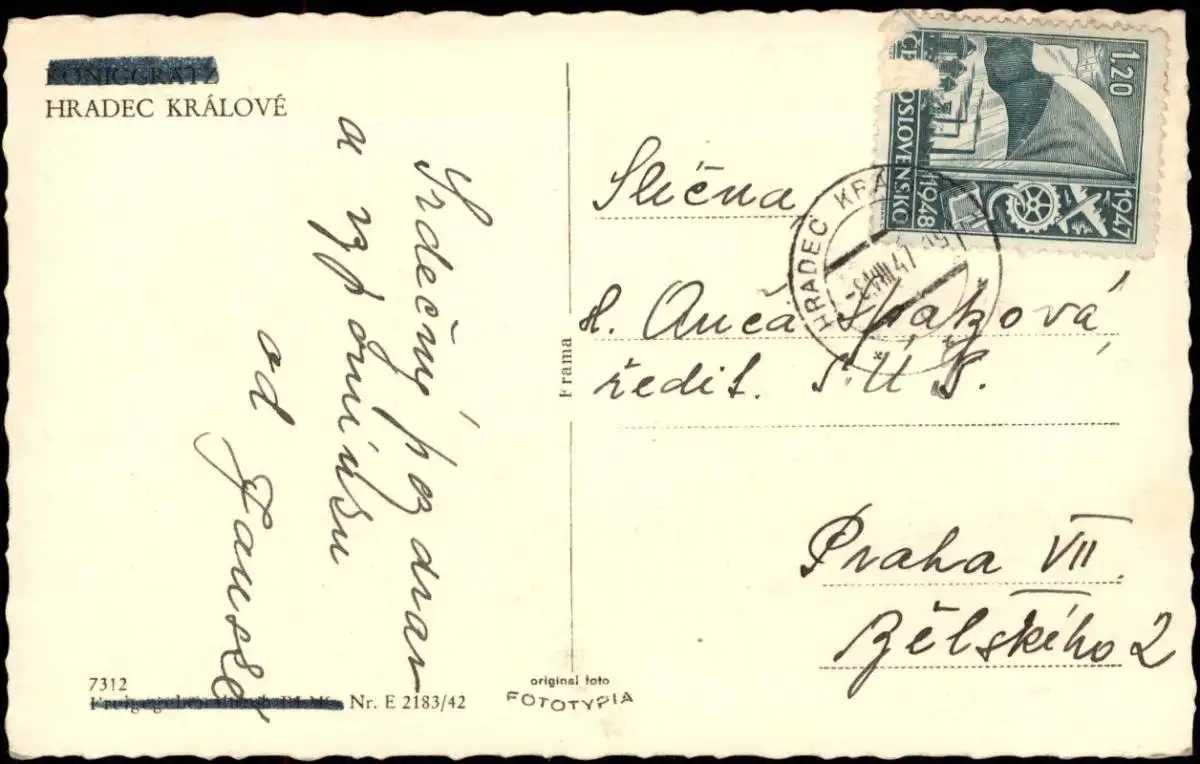 KÖNIGGRÄTZ
HRADEC KRÁLOVÉ
Srdečný pozdrav
a vzpomínku
od
7312
Freigegeben durch RLM. Nr. E 2183/42
original foto
FOTOTYPIA
Frama
1.20
ČESKOSLOVENSKO
1947
1948
HRADEC KRÁ
VIII 47
Slečna
sl. Anča Špatzová
ředit. S.Ú.S.
Praha VII.
Bělského 2